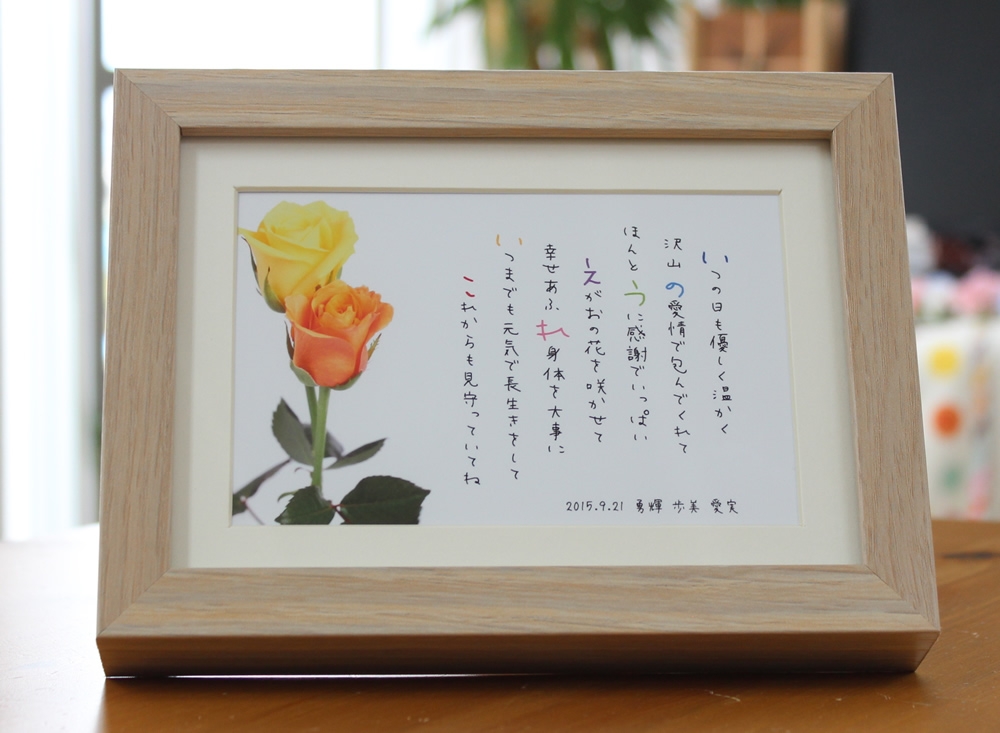 いつの日も優しく温かく
沢山の愛情で包んでくれて
ほんとうに感謝でいっぱい
えがおの花を咲かせて
幸せあふれ身体を大事に
いつまでも元気で長生きをして
これからも見守っていてね
2015.9.21 勇輝 歩美 愛実